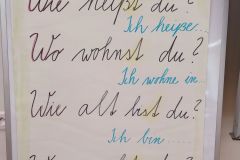 Wie heißt du?
Ich heiße...
Wo wohnst du?
Ich wohne in...
Wie alt bist du?
Ich bin.....